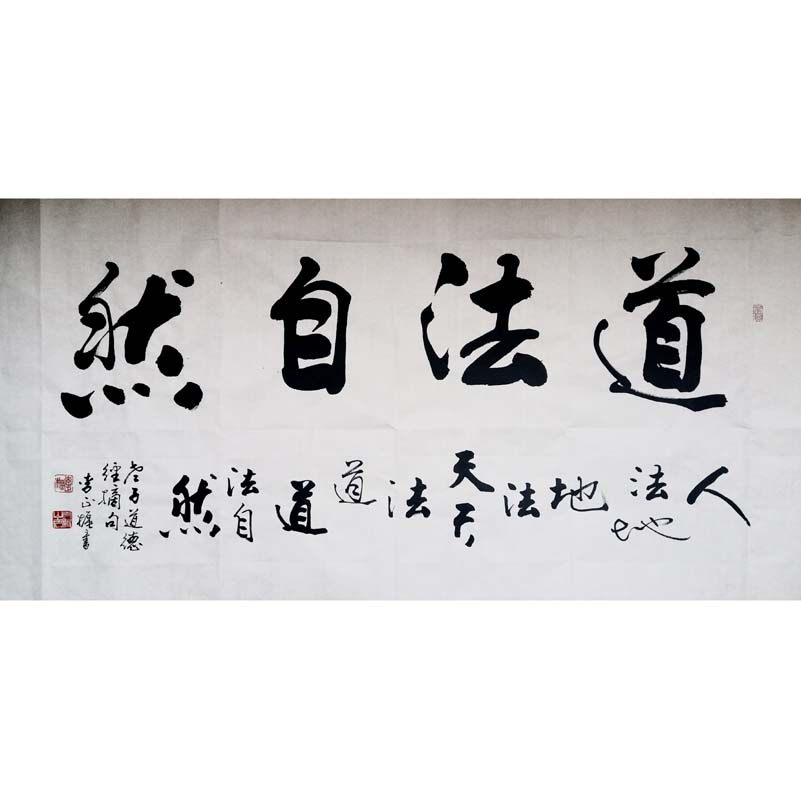 道法自然
人法地地法天天法道道法自然
老子道德
经摘句
李正权书